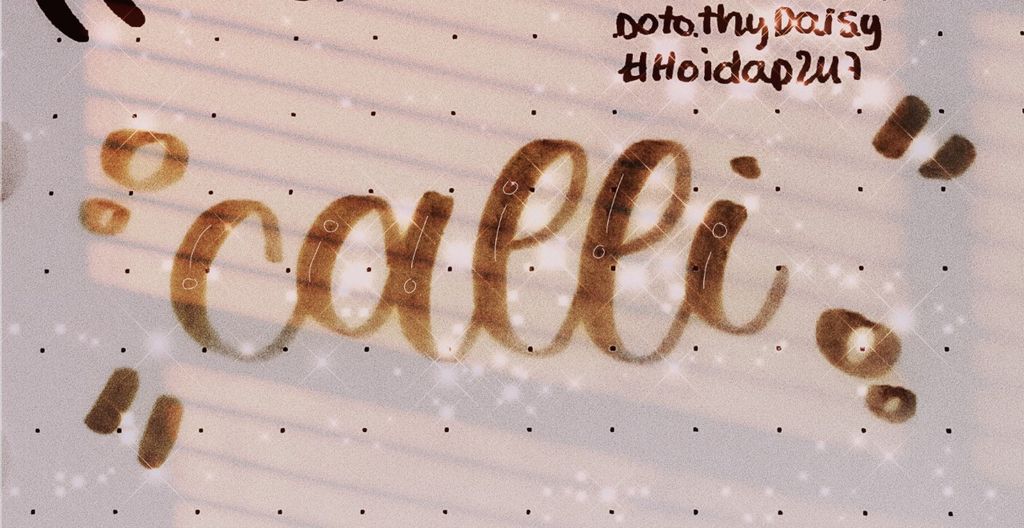 DotothyDaisy
#Hoidap247
calli